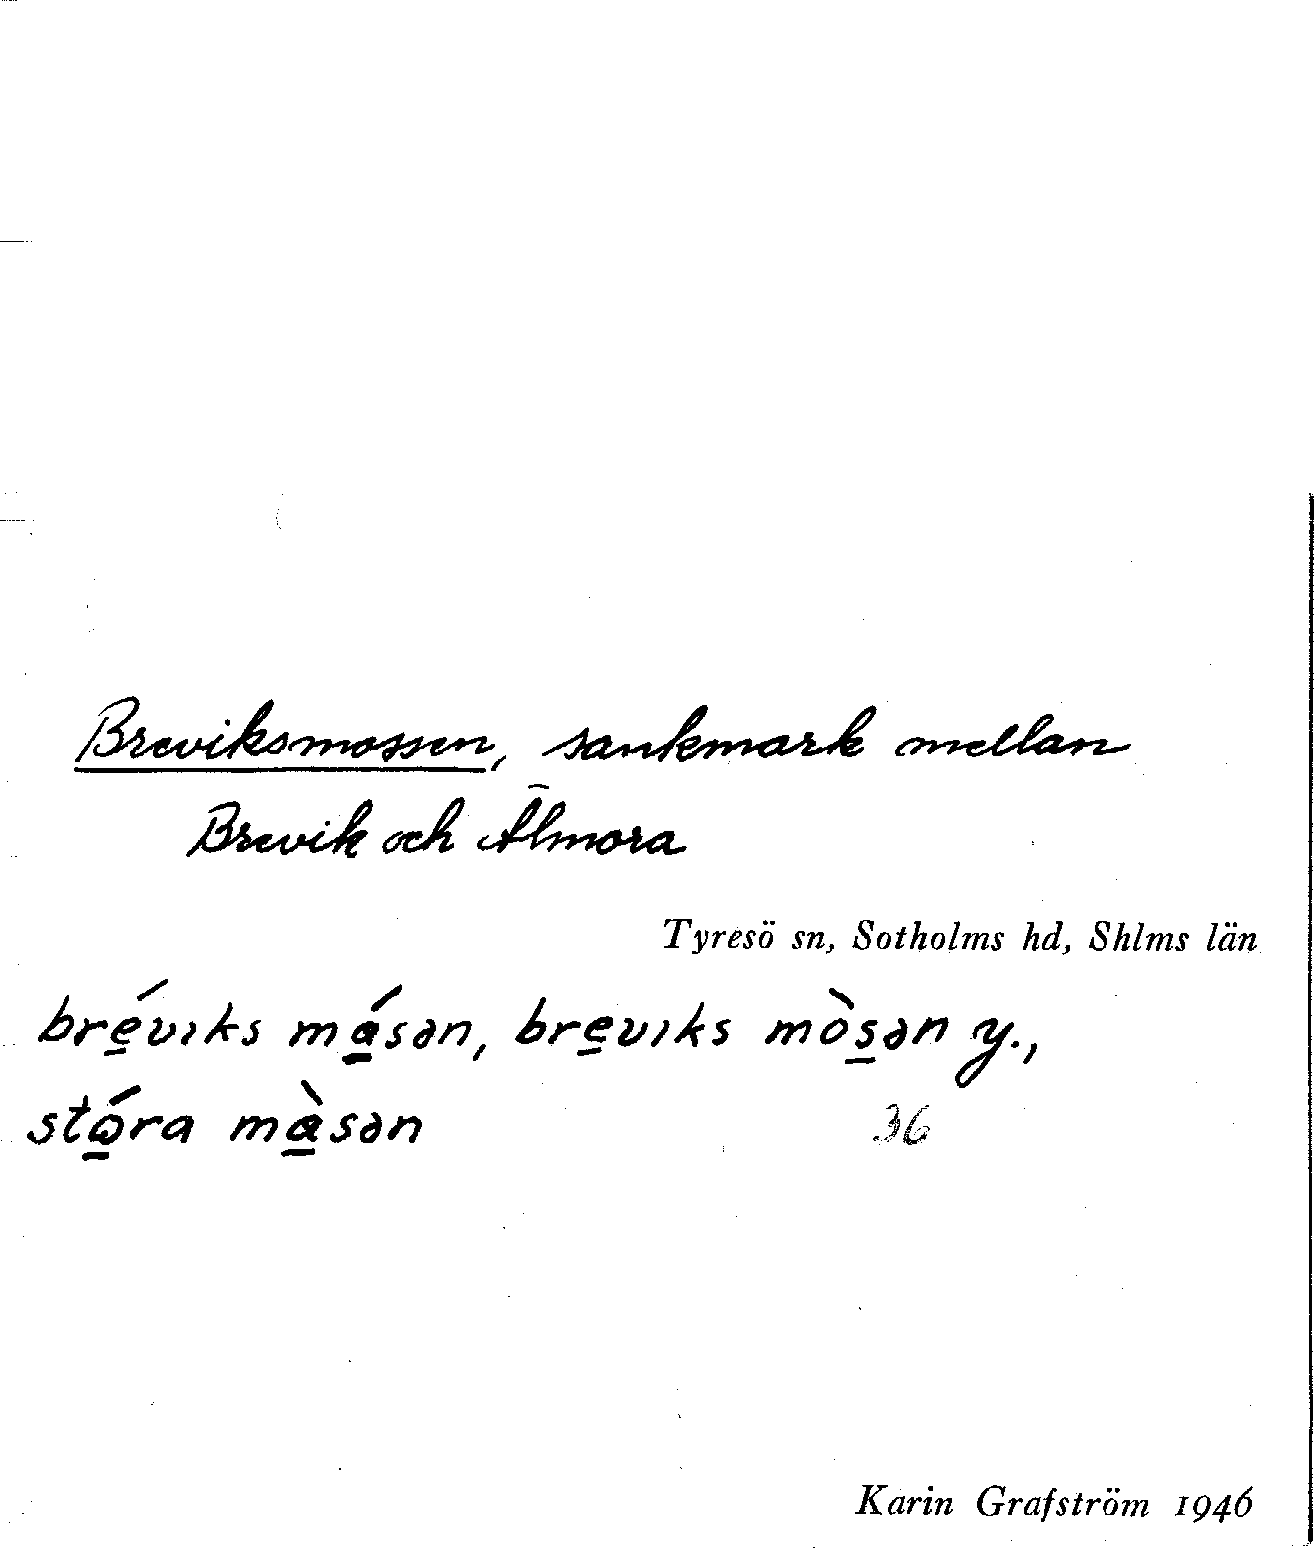 Breviksmossen, sankmark mellan
Brevik och Älmora
Tyresö sn, Sotholms hd, Shlms län
bré̲vıks má̲sən, bre̲vıks mòs̲ən y.,
stώ̲ra mɑ̲̀sən
36
Karin Grafström 1946